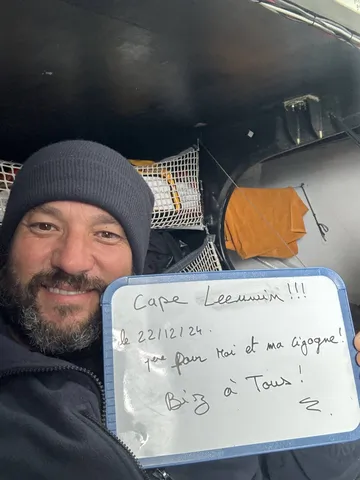 Cape Leeuwin !!!
le 22/12/24.
1ère pour moi et ma cigogne !
Biz à Tous !